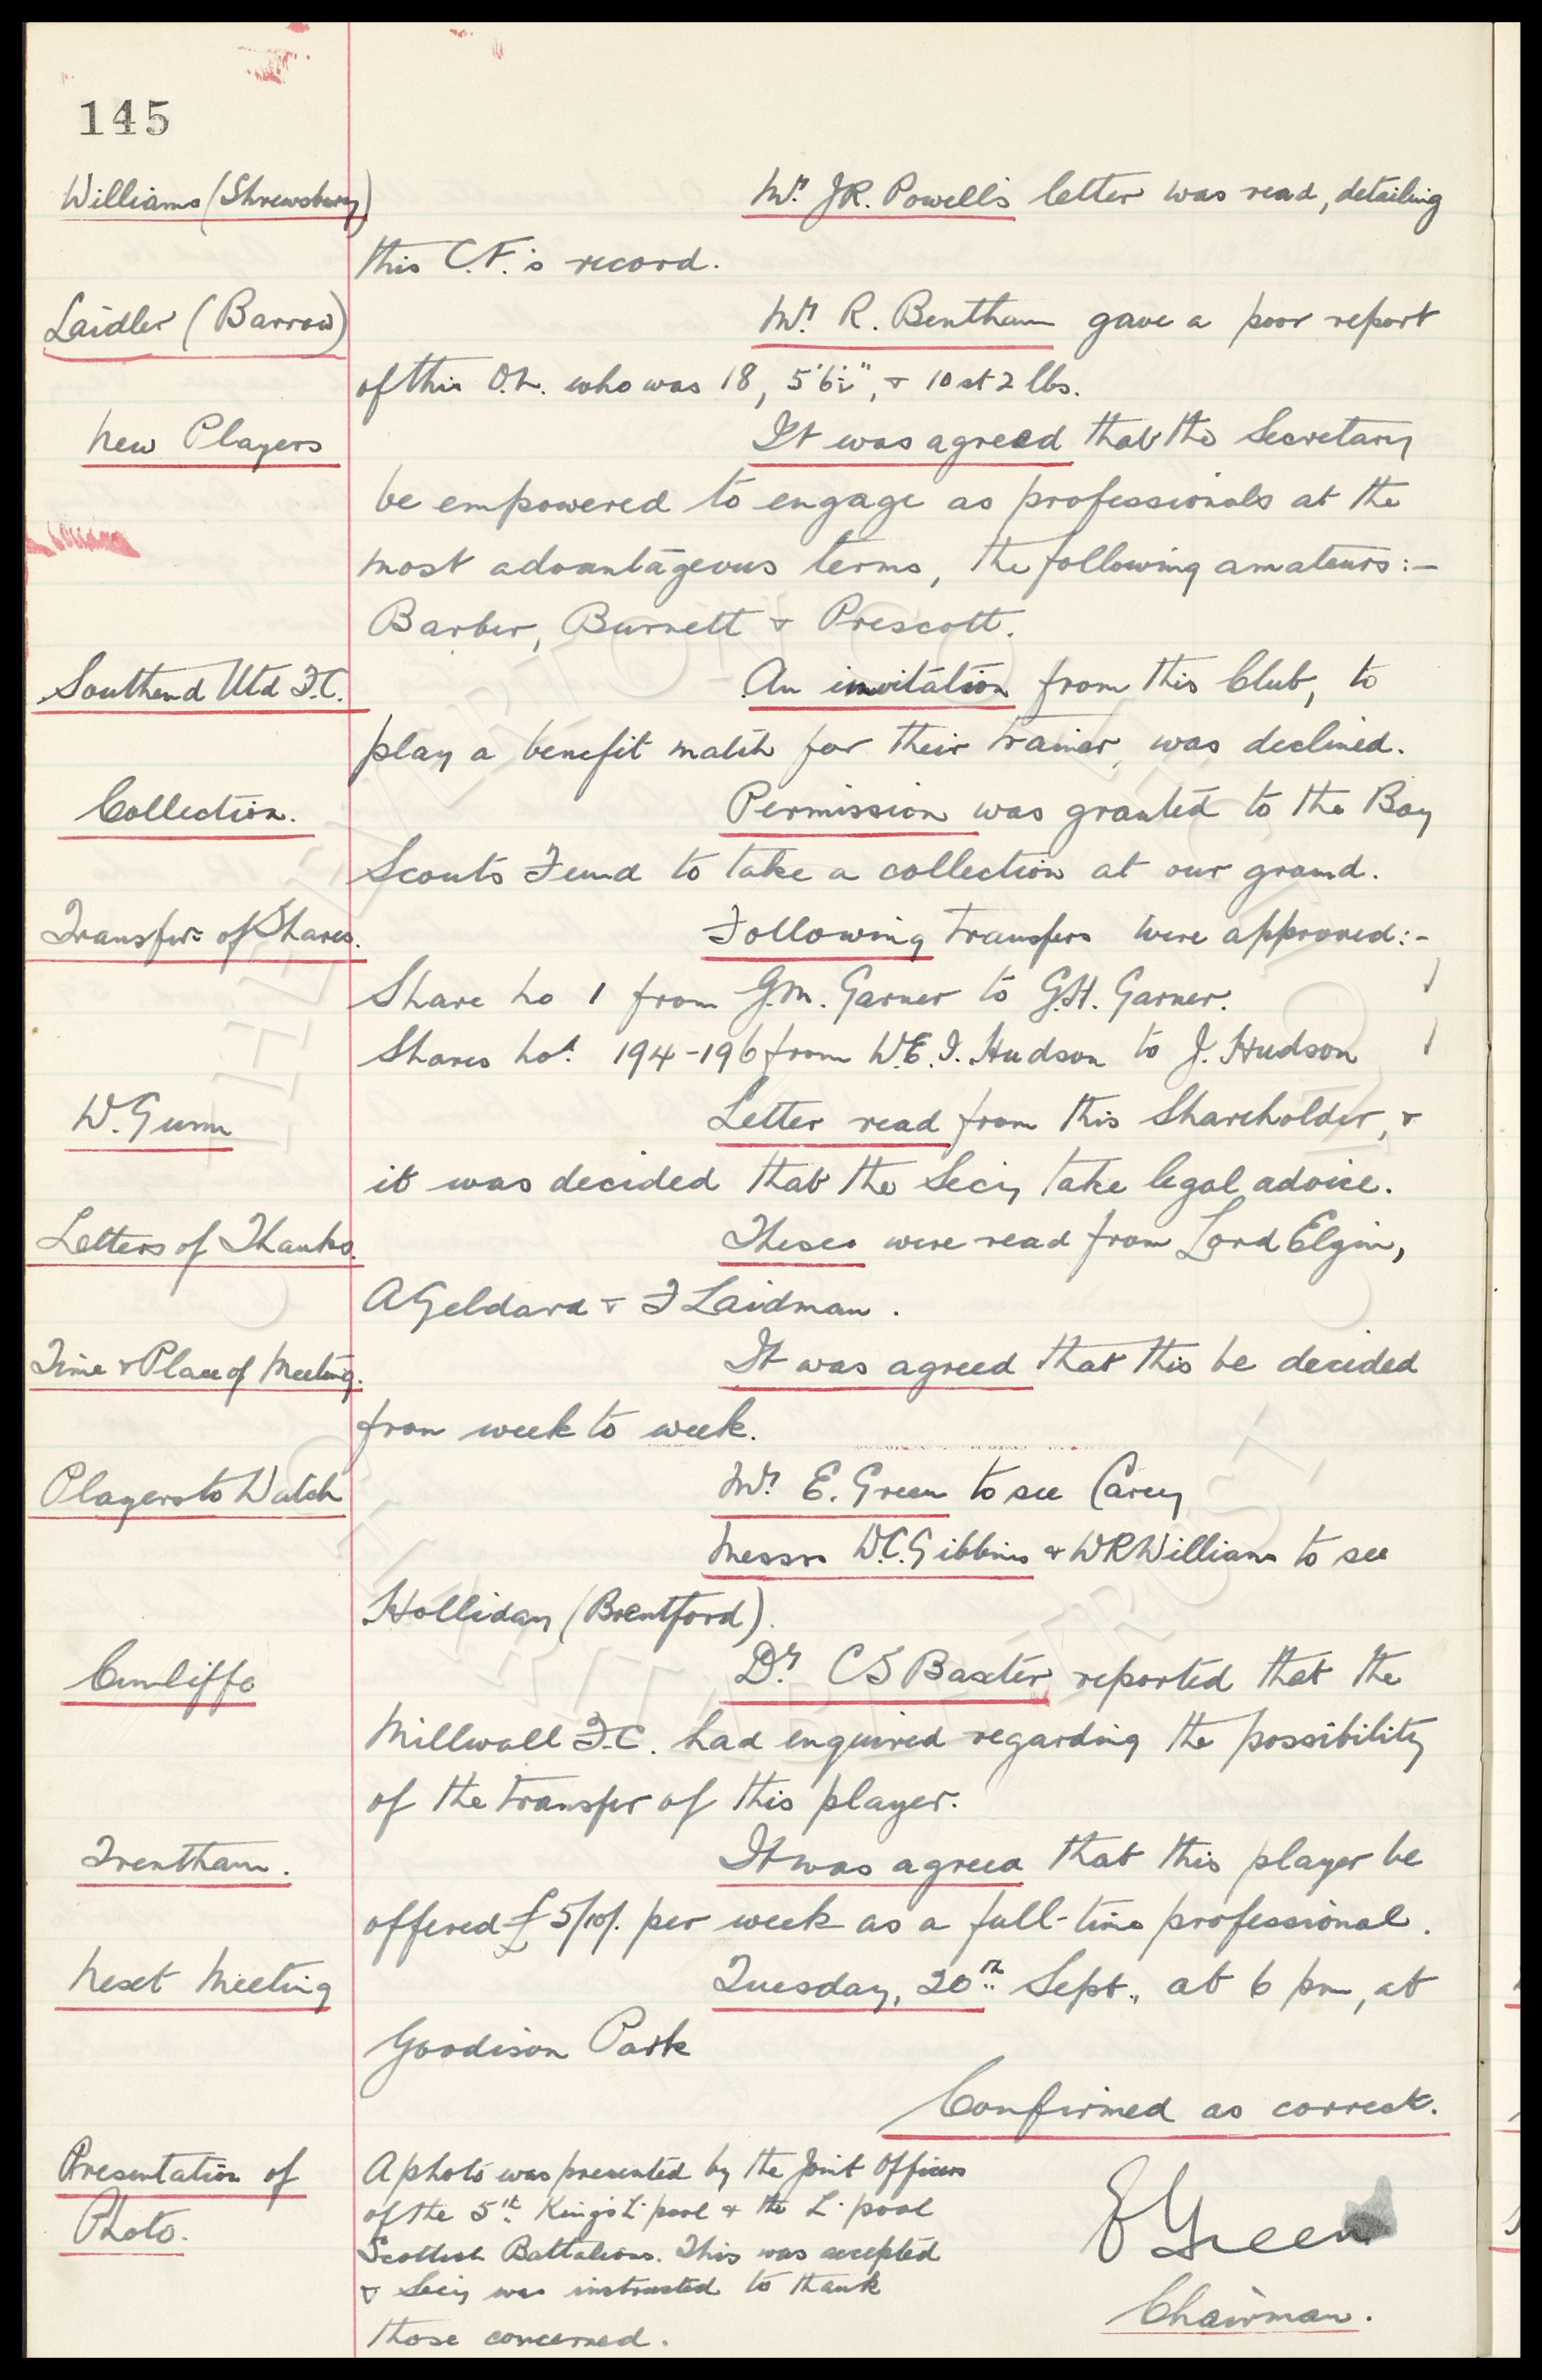 145
Williams (Shrewsbury) Mr. J.R. Powell's letter was read, detailing
this C.F.'s record.
Laidler (Barrow) Mr. R. Bentham gave a poor report
of this O.L. who was 18, 5'6½", & 10 st 2 lbs.
New Players It was agreed that the Secretary
be empowered to engage as professionals at the
most advantageous terms, the following amateurs:-
Barber, Burnett & Prescott.
Southend Utd F.C. An invitation from this Club, to
play a benefit match for their trainer, was declined.
Collection. Permission was granted to the Boy
Scouts Fund to take a collection at our ground.
Transfers of Shares. Following transfers were approved:-
Share No 1 from G.M. Garner to G.H. Garner.
Shares Nos. 194-196 from W.E.I. Hudson to J. Hudson
W. Gunn Letter read from this Shareholder, &
it was decided that the Secy take legal advice.
Letters of Thanks. These were read from Lord Elgin,
A Geldard & F Laidman.
Time & Place of Meeting. It was agreed that this be decided
from week to week.
Players to Watch Mr. E. Green to see Carey
Messrs W.C. Gibbins & W R Williams to see
Holliday (Brentford).
Cunliffe Dr. C S Baxter reported that the
Millwall F.C. had enquired regarding the possibility
of the transfer of this player.
Trentham. It was agreed that this player be
offered £5/10/. per week as a full-time professional.
Next Meeting Tuesday, 20th Sept., at 6 pm, at
Goodison Park
Confirmed as correct.
Presentation of A photo was presented by the Joint Officers
of the 5th King's L'pool & the L'pool
Photo. Scottish Battalions. This was accepted
E Green
& Secy was instructed to thank
those concerned.
Chairman.